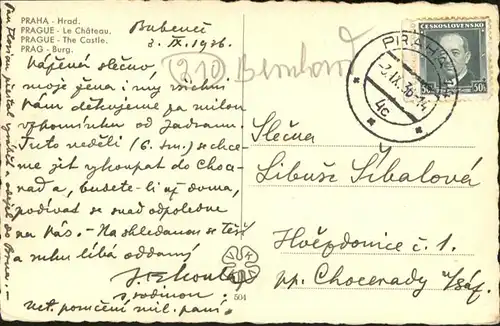 PRAHA - Hrad.
PRAGUE - Le Château.
PRAGUE - The Castle.
PRAG - Burg.
Bubeneč
3. IX. 1936.
Vážená slečno,
moje žena i my všichni
Vám děkujeme za milou
vzpomínku od Jadranu.
Tuto neděli (6. t.m.) se chce-
me jet vykoupat do Choce-
rad a, budete-li už doma,
podívat se snad odpoledne
na Vás. - Na shledanou se těší
a ruku líbá oddaný
s rodinou
Uct. poručení mil. paní.
(210)
ČESKOSLOVENSKO
50h
50h
PRAHA
2.IX.36-14
4c
Slečna
Libuše Šibalová
Hvězdonice č. 1.
pp. Chocerady n/Sáz.
V
K
501